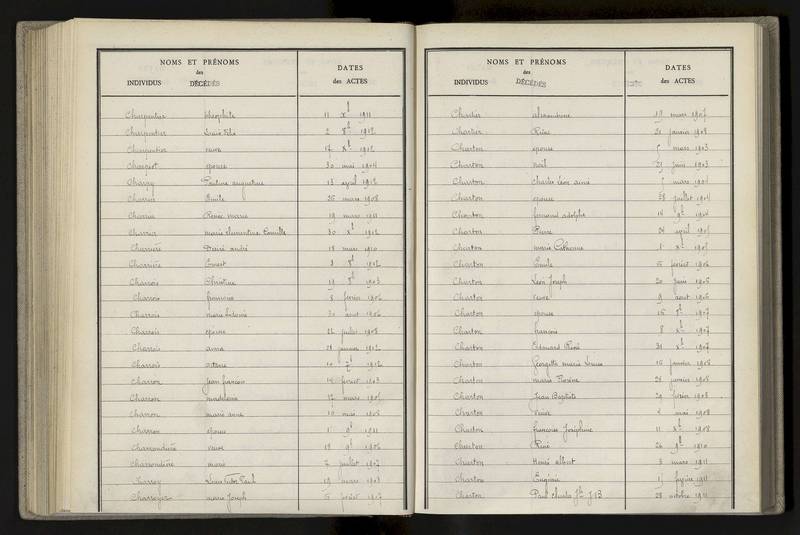 NOMS ET PRÉNOMS
des
INDIVIDUS DÉCÉDÉS
DATES
des ACTES
Charpentier théophile 11 Xbre 1911
Charpentier Louis 2 8bre 1912
Charpentier veuve 17 Xbre 1912
épouse 30 mai 1904
Charpy Pauline augustine 13 avril 1912
Emile 25 mars 1908
Charrier Renée marie 19 mars 1911
Charrier marie clémentine Camille 30 Xbre 1912
Charrière Désiré andré 18 mars 1910
Charrière Ernest 8bre 1902
Charrois Christine 19 8bre 1903
Charrois 8 février 1906
Charrois 30 aout 1906
Charrois épouse 22 juillet 1908
Charrois anna janvier 1912
Charrois 10 1912
Charron Jean françois 14 février 1903
Charron madeleine 12 mars 1905
Charron marie anne 10 mai 1906
Charron épouse 1 9bre 1911
Charrondière veuve 18 9bre 1906
Charrondière marie 7 juillet 1907
Charroy Louis Paul 19 mars 1903
Charroyer marie Joseph 15 février 1907
NOMS ET PRÉNOMS
des
INDIVIDUS DÉCÉDÉS
DATES
des ACTES
Chartier alexandrine 19 mars 1907
Chartier Reine 21 janvier 1908
Charton épouse mars 1903
Charton noël 21 juin 1903
Charton Charles Léon aimé mars 1904
Charton épouse 28 juillet 1904
Charton fernand adolphe 14 9bre 1904
Charton Pierre 24 avril 1905
Charton marie Catherine 1 Xbre 1905
Charton Emile 15 février 1906
Charton Léon Joseph 20 juin 1906
Charton veuve 9 aout 1906
Charton épouse 15 1907
Charton françois 8 Xbre 1907
Charton Edouard René 31 Xbre 1907
Charton Georgette marie Louise 15 janvier 1908
Charton marie 28 janvier 1908
Charton Jean Baptiste 29 février 1908
Charton veuve 4 mai 1908
Charton françoise Joséphine 11 Xbre 1908
Charton René 26 9bre 1910
Charton Henri albert 3 mars 1911
Charton Eugénie 1 février 1911
Charton Paul Charles Jh J-B 28 octobre 1911